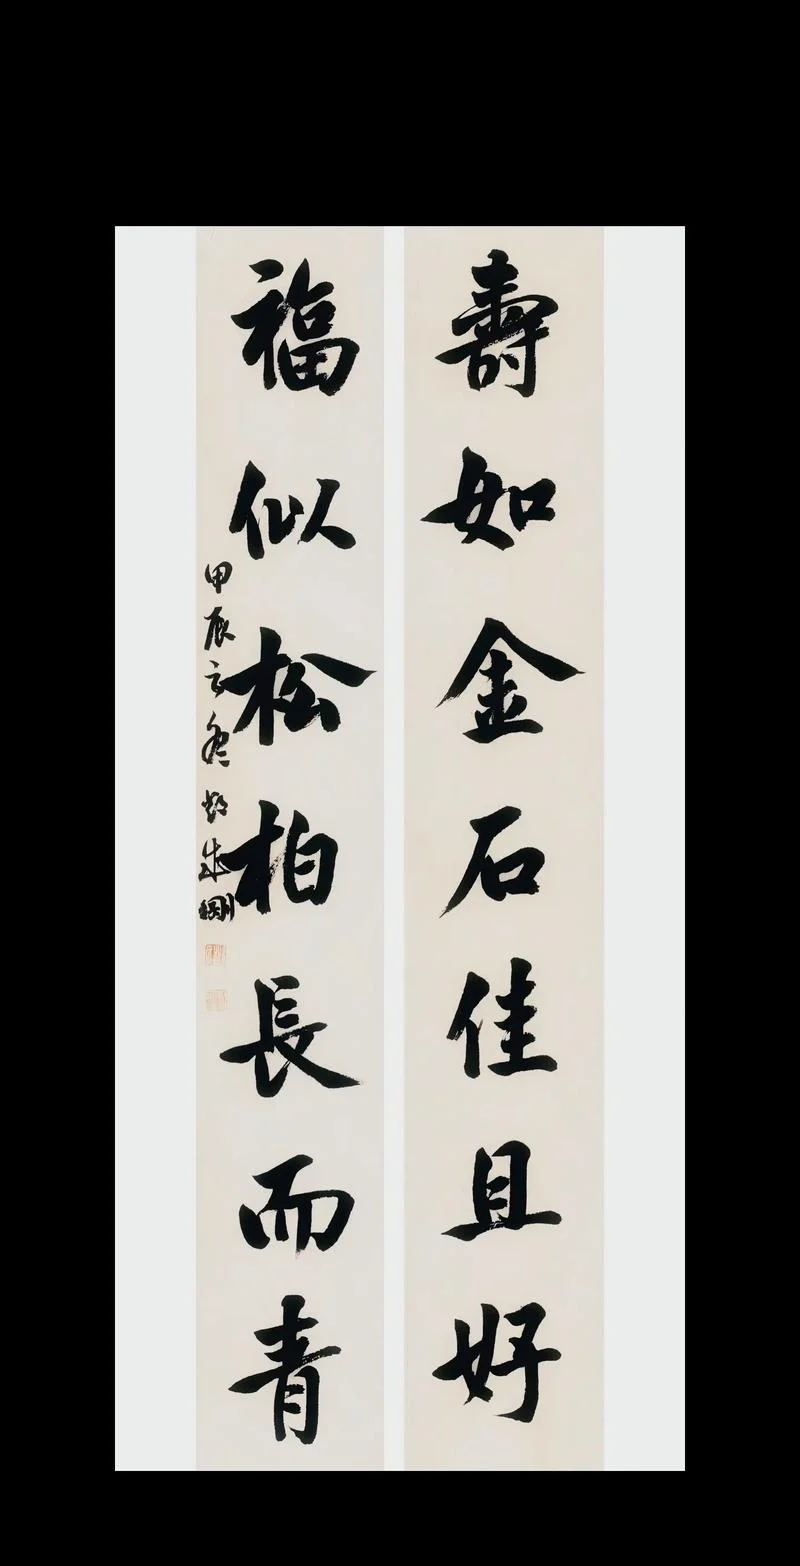 壽如金石佳且好
福似松柏長而青
甲辰